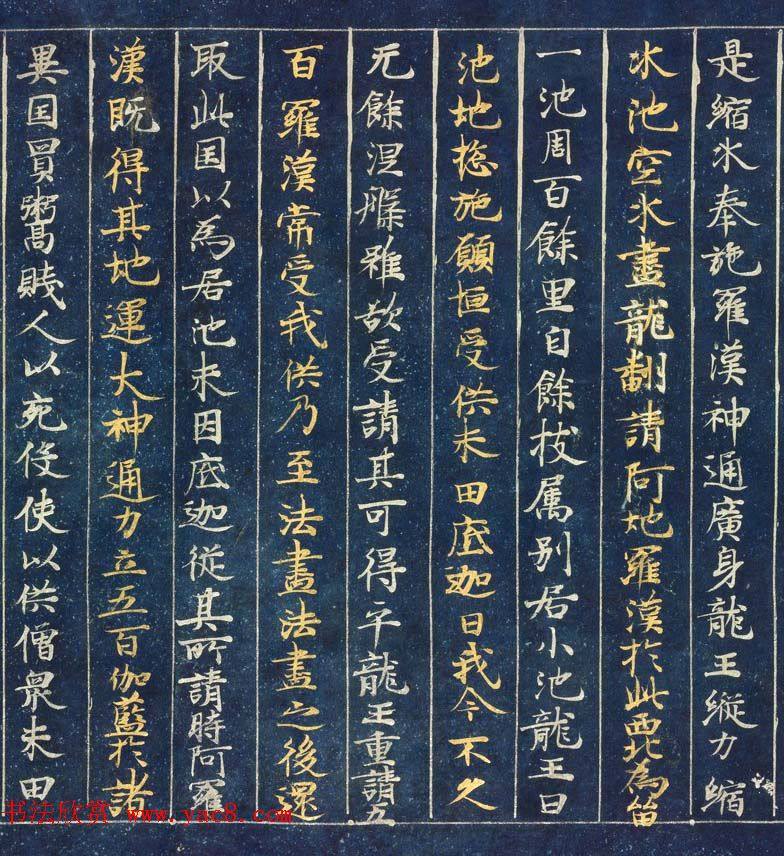 是縮水奉施羅漢神通廣身龍王縱力縮
水池空水盡龍翻請阿地羅漢於此西北為留
一池周百餘里自餘枝属别居小池龍王曰
池地揔施願恒受供末田底迦曰我今不久
无餘涅槃雖欲受請其可得乎龍王重請五
百羅漢常受我供乃至法盡法盡之後還
取此国以為居池末因底迦從其所請時阿羅
漢既得其地運大神通力立五百伽藍於諸
異国買鬻賤人以充役使以供僧衆末田
书法欣赏 www.yac8.com